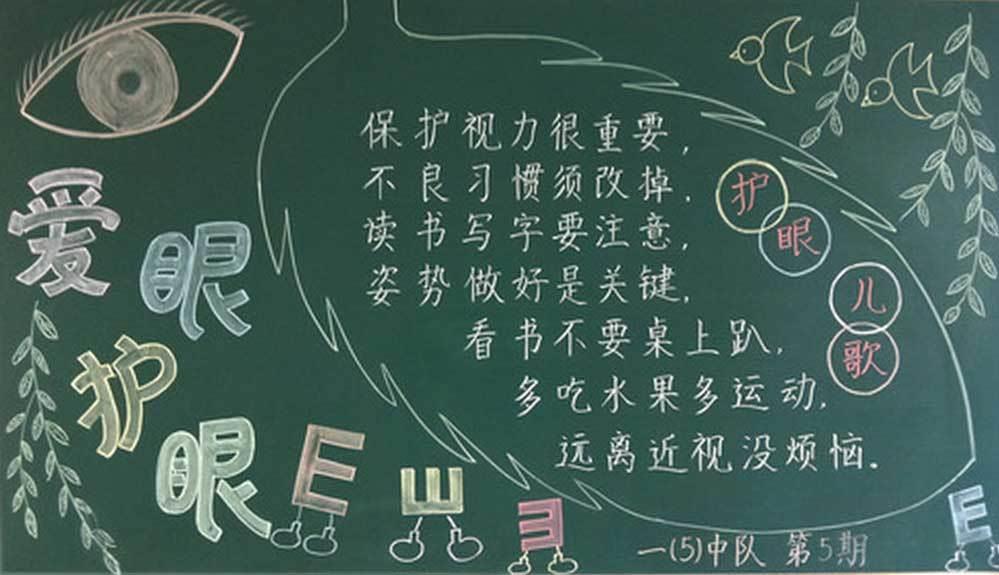 爱眼
护眼
护眼儿歌
保护视力很重要，
不良习惯须改掉．
读书写字要注意，
姿势做好是关键．
看书不要桌上趴．
多吃水果多运动．
远离近视没烦恼。
E
E
E
E
一(5)中队 第5期